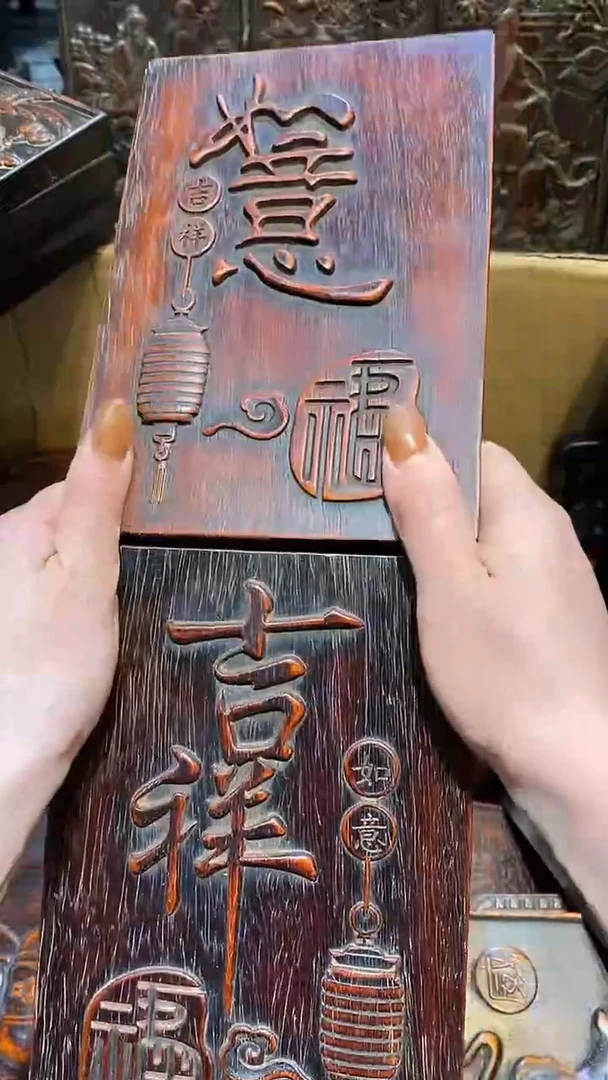 如意
吉
祥
福
吉祥
如
意
福